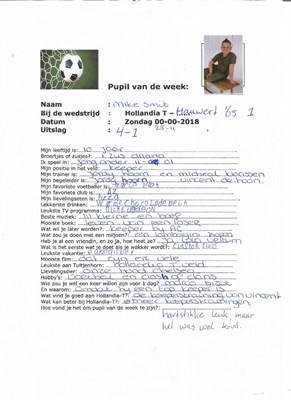 Pupil van de week:
Naam : Mike Smit
Bij de wedstrijd : Hollandia T - Hauwert '65 1
Datum : Zondag 00-00-2018
25-11
Uitslag : 4-1
Mijn leeftijd is: 10 jaar
Broertjes of zusjes?: 1 zus
Ik speel in: jong onder 11-01
Mijn positie in het veld: keeper
Mijn trainer is: hoorn en micheal klaassen
Mijn begeleider is: vincent de hoorn
Mijn favoriete voetballer is:
Mijn favoriete club is:
Mijn lievelingseten is:
Lekkerste drinken: warme chocolademelk
Leukste TV programma: nickelodeon
Beste muziek: lil kleine en boef
Mooiste boek: leven van een loser
Wat wil je later worden?: keeper bij
Wat zou je doen met een miljoen?: een lamborgini kopen
Heb je al een vriendin, en zo ja, hoe heet ze?: ja
Wat is het eerste wat je doet als je wakker wordt?:
Leukste vakantie:
Mooiste film: dat zijn er vele
Leukste aan Tuitjenhorn: Hollandia T veld
Lievelingsdier: onze hond chelsea
Hobby's: voetbal en clash of clans
Wie zou je wel een keer willen zijn voor 1 dag?: marco bizot
En waarom: omdat hij een top keeper is
Wat vind je goed aan Hollandia-T?: de keeperstraining van vincent
Wat kan beter bij Hollandia-T?: meer keeperstrainingen
Hoe vond je het om pupil van de week te zijn?: hartstikke leuk, maar
het was wel koud.